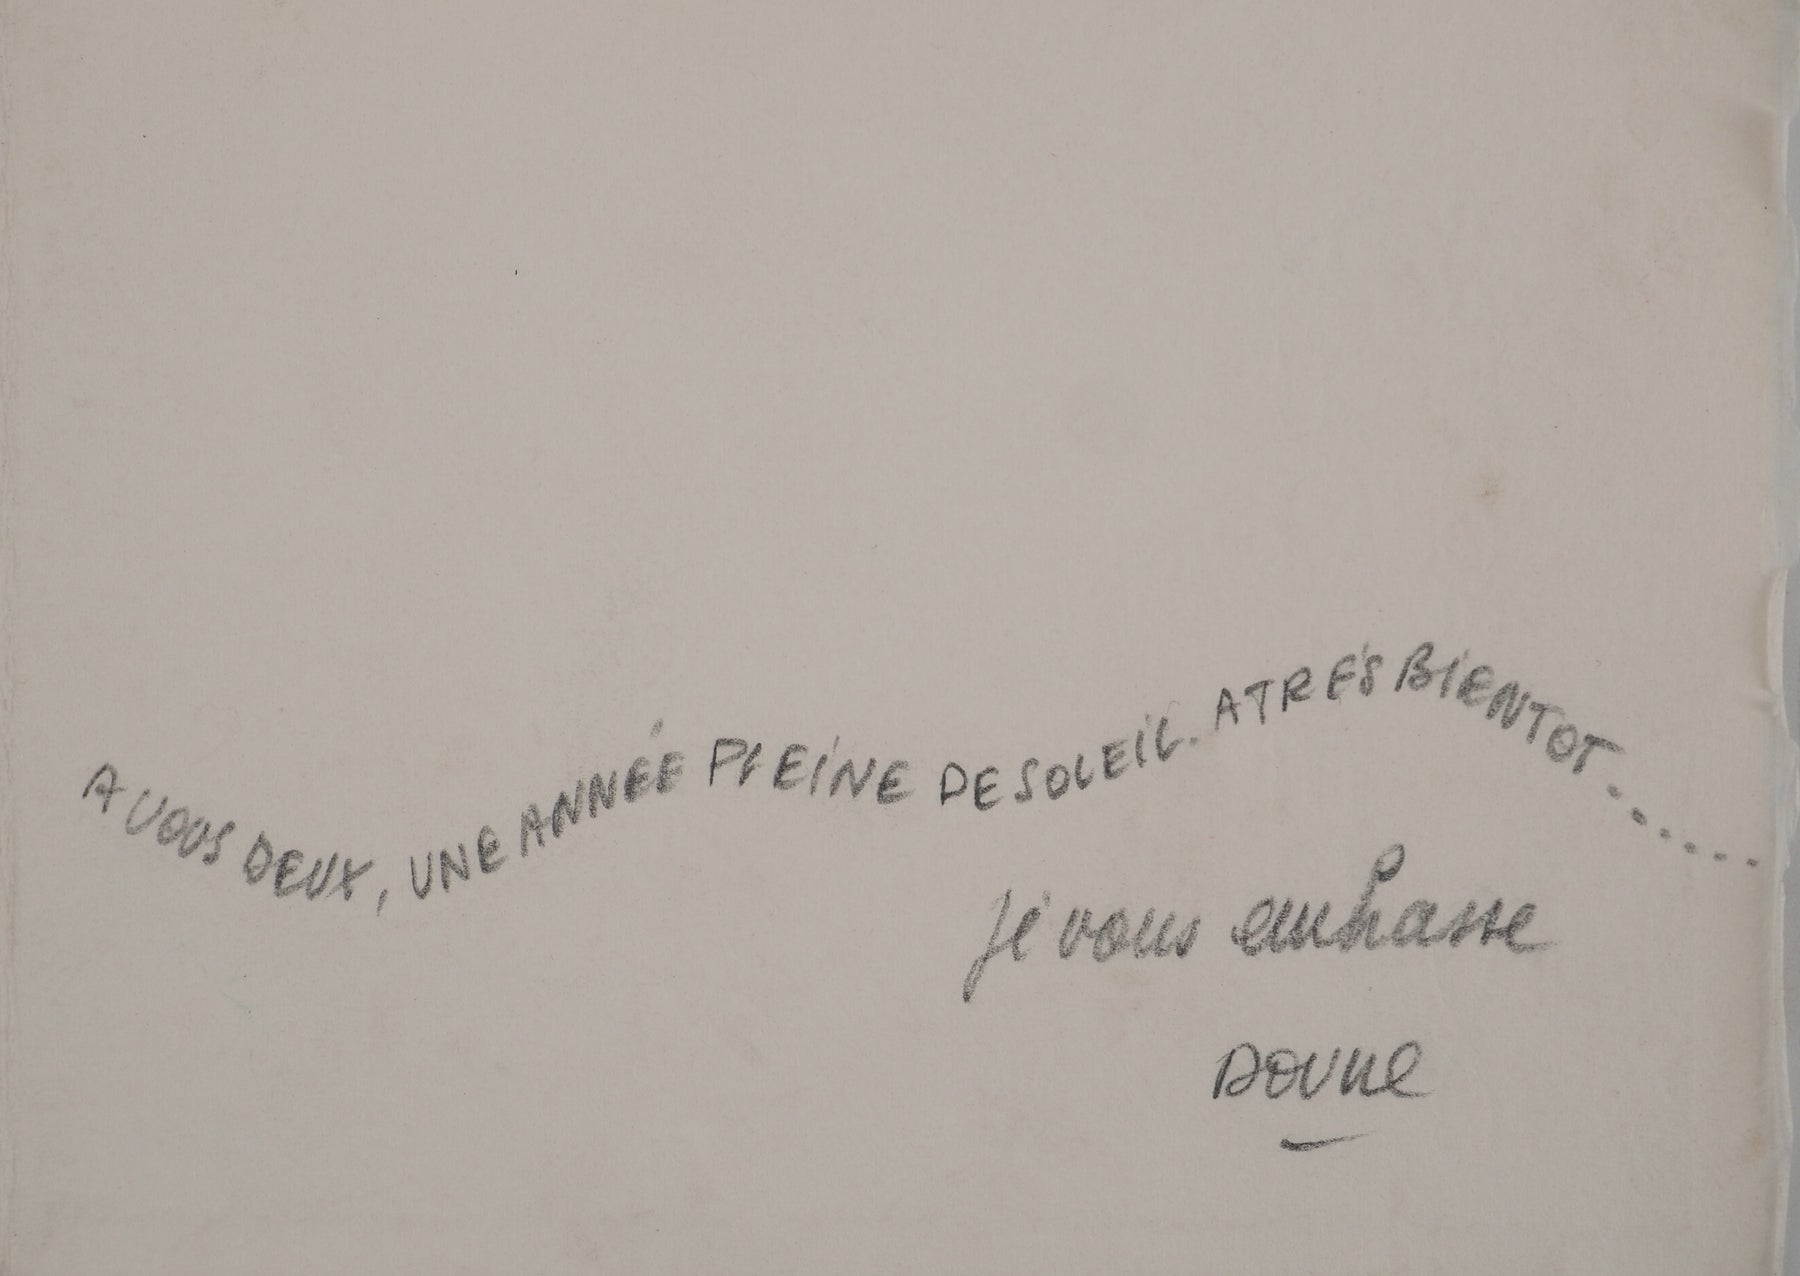 A VOUS DEUX, UNE ANNÉE PLEINE DE SOLEIL. A TRES BIENTOT........
Je vous embrasse
DOUNE